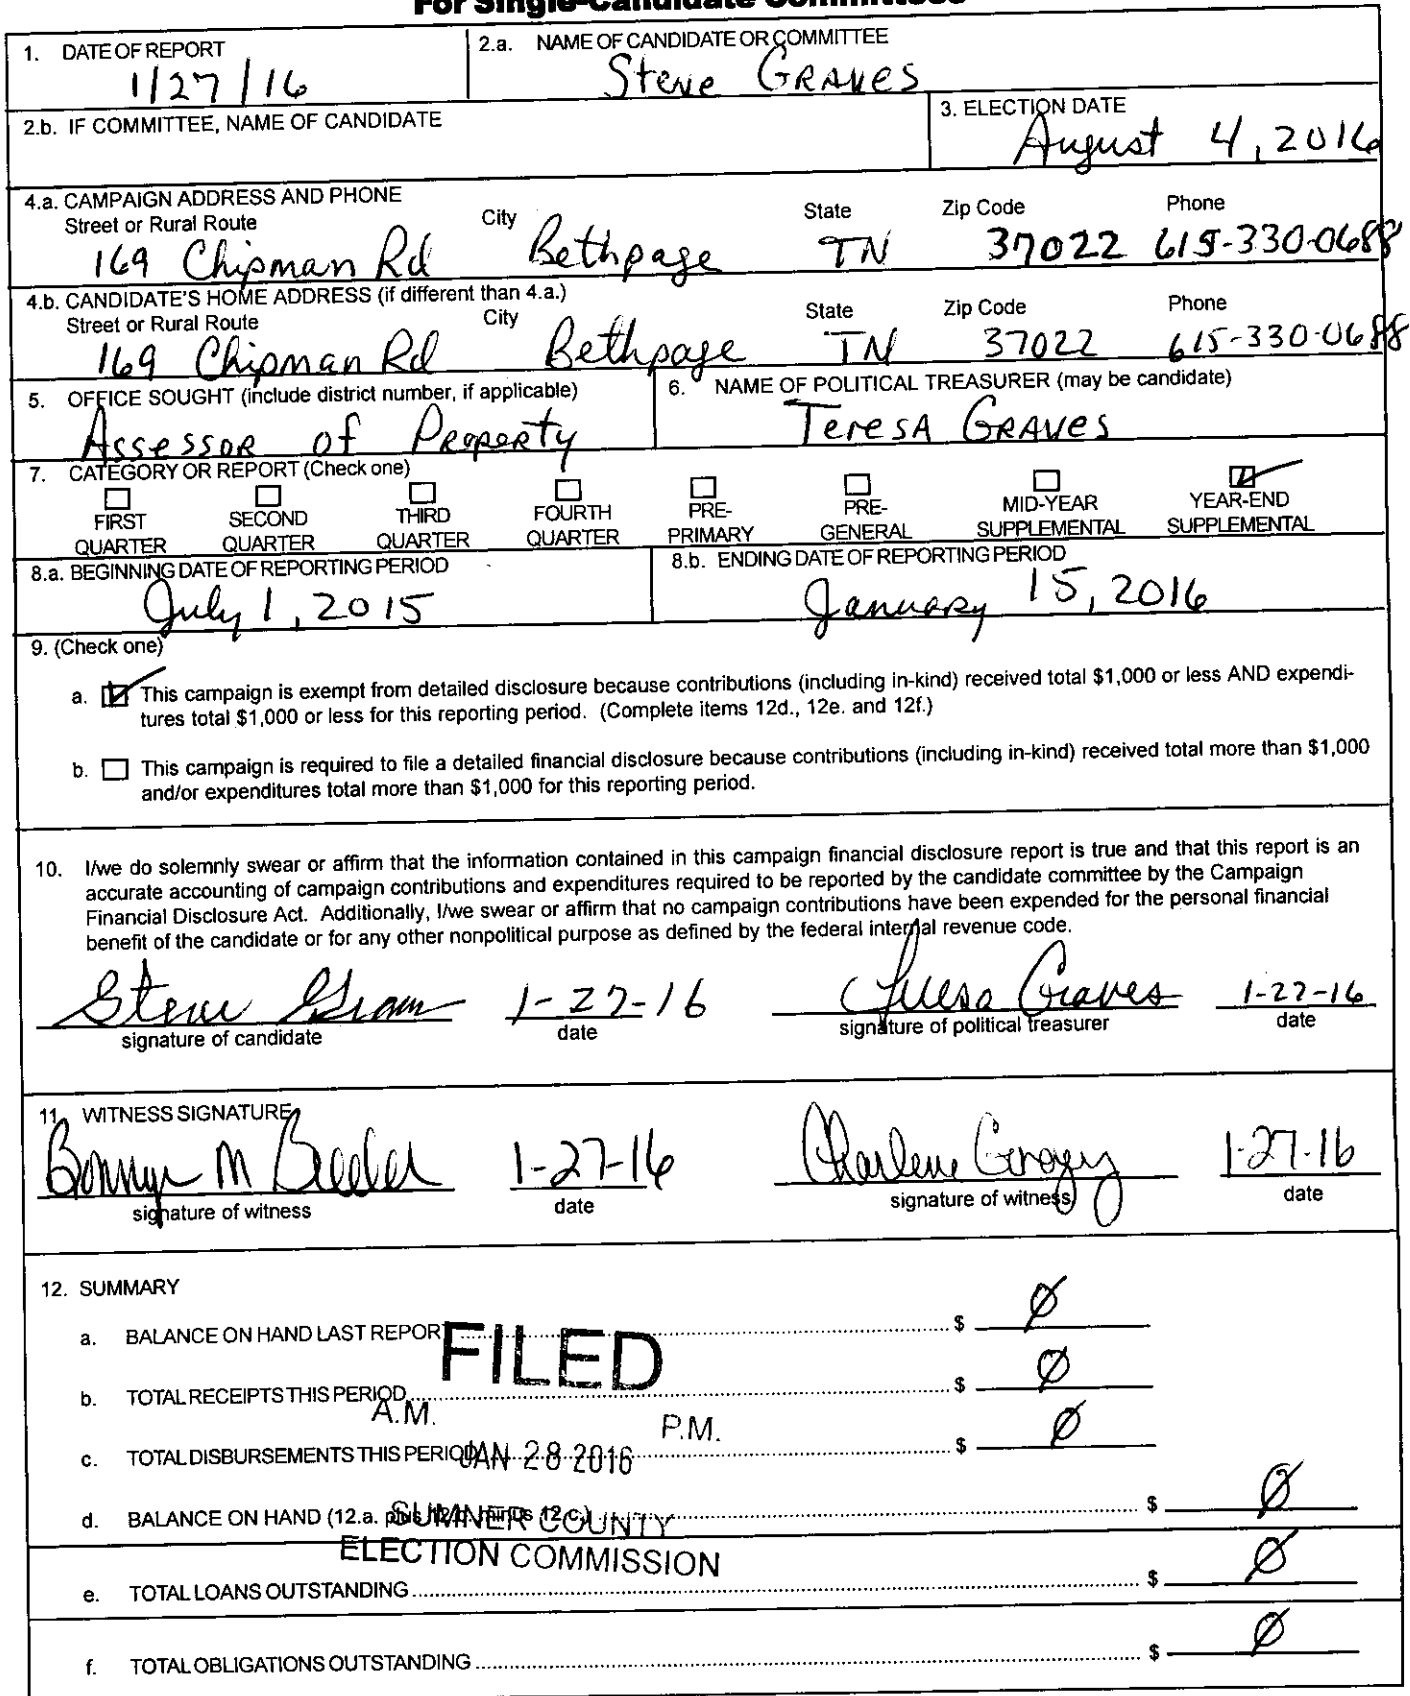 For Single-Candidate Committees
1. DATE OF REPORT
1/27/16
2.a. NAME OF CANDIDATE OR COMMITTEE
Steve GRAVES
2.b. IF COMMITTEE, NAME OF CANDIDATE
3. ELECTION DATE
August 4, 2016
4.a. CAMPAIGN ADDRESS AND PHONE
Street or Rural Route City State Zip Code Phone
169 Chipman Rd Bethpage TN 37022 615-330-0688
4.b. CANDIDATE'S HOME ADDRESS (if different than 4.a.)
Street or Rural Route City State Zip Code Phone
169 Chipman Rd Bethpage TN 37022 615-330-0688
5. OFFICE SOUGHT (include district number, if applicable)
Assessor of Property
6. NAME OF POLITICAL TREASURER (may be candidate)
Teresa GRAVES
7. CATEGORY OR REPORT (Check one)
FIRST QUARTER
SECOND QUARTER
THIRD QUARTER
FOURTH QUARTER
PRE-PRIMARY
PRE-GENERAL
MID-YEAR SUPPLEMENTAL
YEAR-END SUPPLEMENTAL
8.a. BEGINNING DATE OF REPORTING PERIOD
July 1, 2015
8.b. ENDING DATE OF REPORTING PERIOD
January 15, 2016
9. (Check one)
a. This campaign is exempt from detailed disclosure because contributions (including in-kind) received total $1,000 or less AND expendi-
tures total $1,000 or less for this reporting period. (Complete items 12d., 12e. and 12f.)
b. This campaign is required to file a detailed financial disclosure because contributions (including in-kind) received total more than $1,000
and/or expenditures total more than $1,000 for this reporting period.
10. I/we do solemnly swear or affirm that the information contained in this campaign financial disclosure report is true and that this report is an
accurate accounting of campaign contributions and expenditures required to be reported by the candidate committee by the Campaign
Financial Disclosure Act. Additionally, I/we swear or affirm that no campaign contributions have been expended for the personal financial
benefit of the candidate or for any other nonpolitical purpose as defined by the federal internal revenue code.
Steve Graves 1-27-16 Teresa Graves 1-27-16
signature of candidate date signature of political treasurer date
11. WITNESS SIGNATURE
M 1-27-16 Charlene 1-27-16
signature of witness date signature of witness date
12. SUMMARY
a. BALANCE ON HAND LAST REPORT $ Ø
FILED
b. TOTAL RECEIPTS THIS PERIOD $ Ø
A.M. P.M.
c. TOTAL DISBURSEMENTS THIS PERIOD $ Ø
JAN 28 2016
d. BALANCE ON HAND (12.a. plus 12.b. minus 12.c.) $ Ø
SUMNER COUNTY
ELECTION COMMISSION
e. TOTAL LOANS OUTSTANDING $ Ø
f. TOTAL OBLIGATIONS OUTSTANDING $ Ø